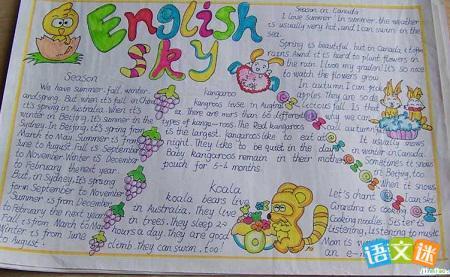 English
Sky
Season
We have summer, fall, winter
and spring. But when it's fall in China
it's spring in Australia. When it's
winter in Beijing, It's summer in
Sydney. In Beijing, it's spring from
March to May. Summer is from
June to August Fall is September
to November Winter is December
to February the next year.
But, in Sydney, It's spring
from September to November
Summer is from December
to February the next year
Fall is from March to May
Winter is from June
to August.
kangaroo
kangaroos live in Australi
a. There are more than 60 different
types of kangaroos. The Red kangaroos
is the largest. kangaroos like to eat at
night. They like to be quiet in the day.
Baby kangaroos remain in their mother
pouch for 5-11 months.
koala
koala bears live
in Australia, They live
in trees. They sleep 22
hours a day. They are good
climb. They can swim, too!
Season in Canada
I love summer. In summer, the weather
is usually very hot, and I can swim in the
sea.
Spring is beautiful, but in Canada, it often
rains. And it is hard to plant flowers in
the rain. I love my garden. It's so nice
to watch the flowers grow.
In autumn I can pick
apples They are so
fall. Is that
why we can
call autumn
It usually snows
in winter in Canada
Sometimes it snows
in Beijing, too
When it snows
Let's chant
Grandma is cooking
Cooking noodle. Sister is
Listening, Listening to music
Mom is
an e-m
语文迷